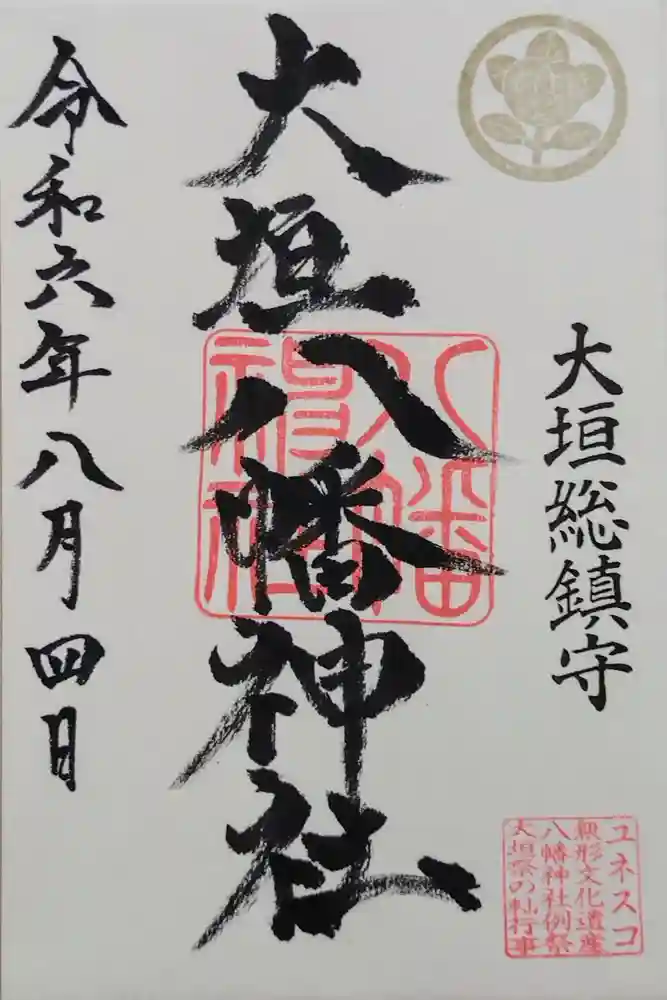 大垣総鎮守
大垣八幡神社
八幡神社
令和六年八月四日
ユネスコ
無形文化遺産
八幡神社例祭
大垣祭の軕行事